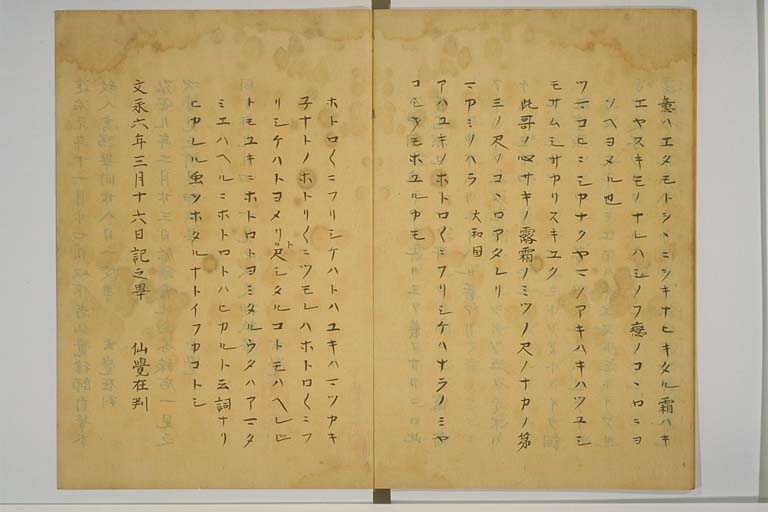 戀ハエタモトシヽニシキナヒキタル霜ハキ
エヤスキモノナレハシノフ戀ノコヽロニヨ
ソヘヨメル也
ツマコヒニシカナクヤマノアキハキハツユシ
モサムミサカリスキユク
此哥ノ心サキノ露霜ノミツノ尺ノナカノ第
三ノ尺ノコヽロアタレリ
ミカノハラ 大和国
アハユキノホトロ〳〵ニフリシケハナラノミヤ
コシオモホユルカモ
ホトロ〳〵ニフリシケハトハユキハマツカキ
子ナトノホトリ〳〵ニツモレハホトロ〳〵ニフ
リシケハトヨメリト尺シタルコトモハヘレ𪜈
トモユキニホトロトヨミタルウタハアマタ
ミエハヘルニホトロトハヒカルト云詞ナリ
ヒカレル虫ヲホタルナトイフカコトシ
文永六年三月十六日記之畢 仙覺在判